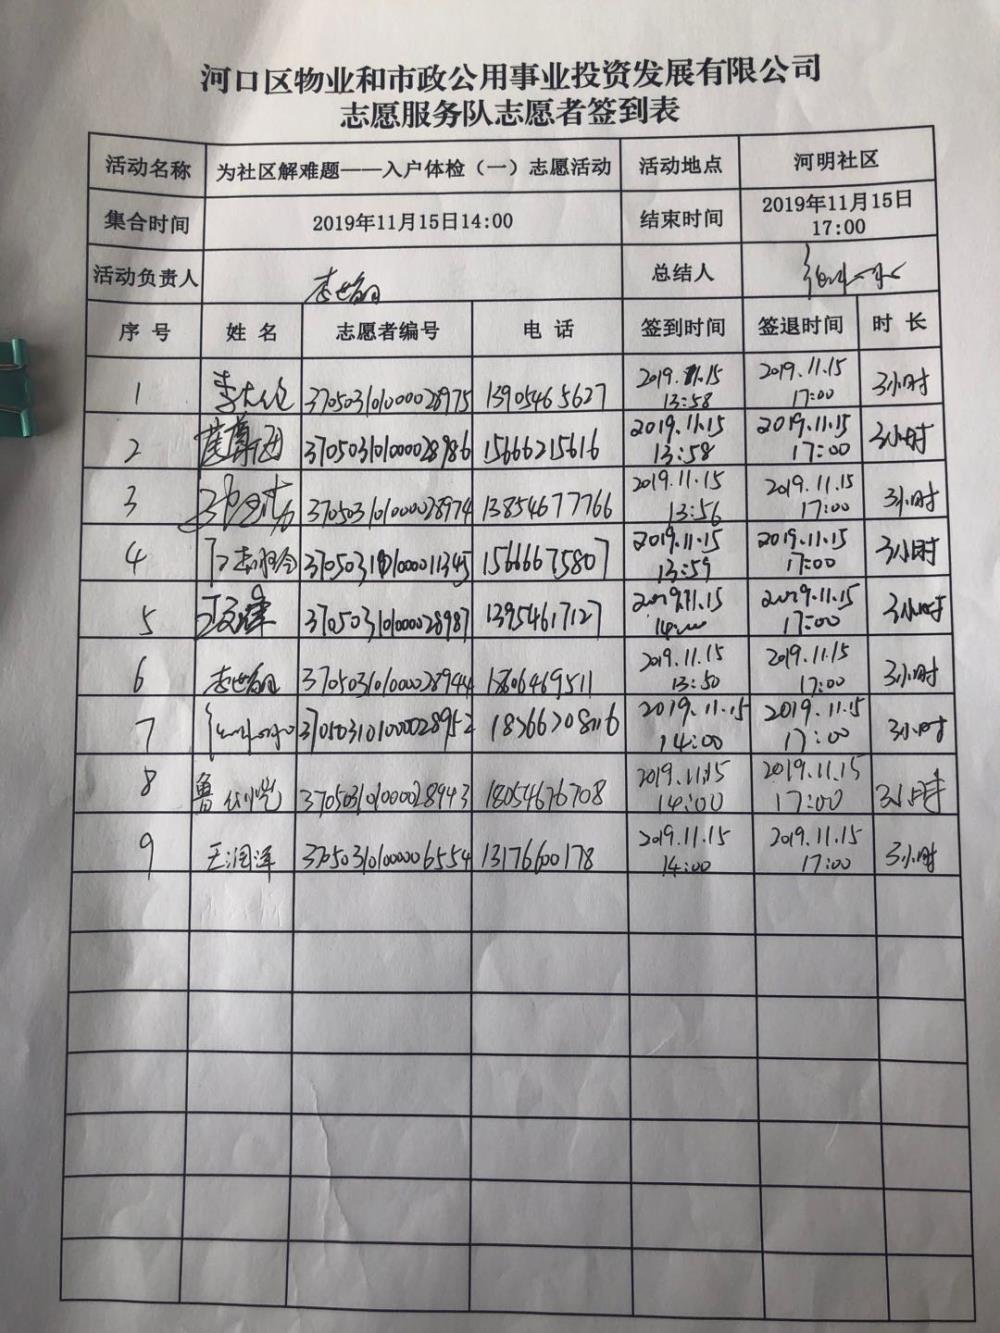 河口区物业和市政公用事业投资发展有限公司
志愿服务队志愿者签到表
活动名称 为社区解难题——入户体检（一）志愿活动 活动地点 河明社区
集合时间 2019年11月15日14:00 结束时间 2019年11月15日
17:00
活动负责人 总结人
序 号 姓 名 志愿者编号 电 话 签到时间 签退时间 时 长
1 370503101000028975 13905465627 2019.11.15 2019.11.15 3小时
13:58 17:00
2 370503101000028986 15666215616 2019.11.15 2019.11.15 3小时
13:58 17:00
3 370503101000028974 13854677766 2019.11.15 2019.11.15 3小时
13:56 17:00
4 370503101000011345 15666675807 2019.11.15 2019.11.15 3小时
13:59 17:00
5 370503101000028987 13954617127 2019.11.15 2019.11.15 3小时
17:00
6 370503101000028944 1806469511 2019.11.15 2019.11.15 3小时
13:50 17:00
7 370503101000028952 2019.11.15 2019.11.15 3小时
14:00 17:00
8 鲁 370503101000028943 18054676708 2019.11.15 2019.11.15 3小时
14:00 17:00
9 王润泽 370503101000006554 13176600178 2019.11.15 2019.11.15 3小时
14:00 17:00